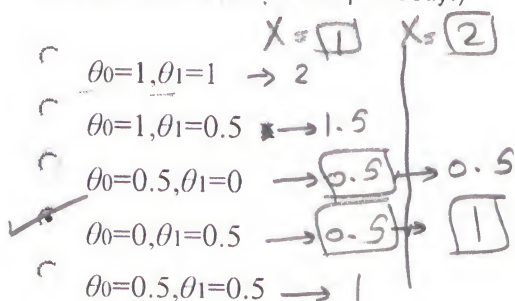 X = 1 X = 2
θ0=1,θ1=1 → 2
θ0=1,θ1=0.5 → 1.5
θ0=0.5,θ1=0 → 0.5 → 0.5
θ0=0,θ1=0.5 → 0.5 → 1
θ0=0.5,θ1=0.5 → 1